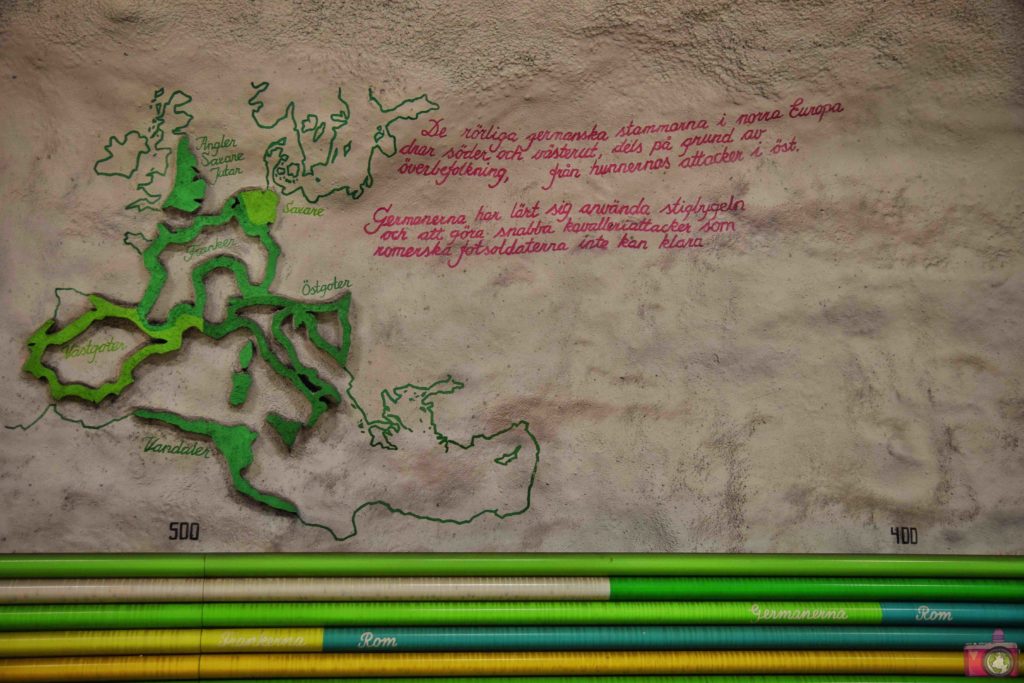 De rörliga germanska stammarna i norra Europa
drar söder och västerut, dels på grund av
överbefolkning, från hunnernas attacker i öst.
Germanerna har lärt sig använda stigbygeln
och att göra snabba kavalleriattacker som
romerska fotsoldaterna inte kan klara
Angler
Saxare
Jutar
Saxare
Franker
Östgoter
Västgoter
Vandaler
500
400
Germanerna Rom
Frankerna Rom